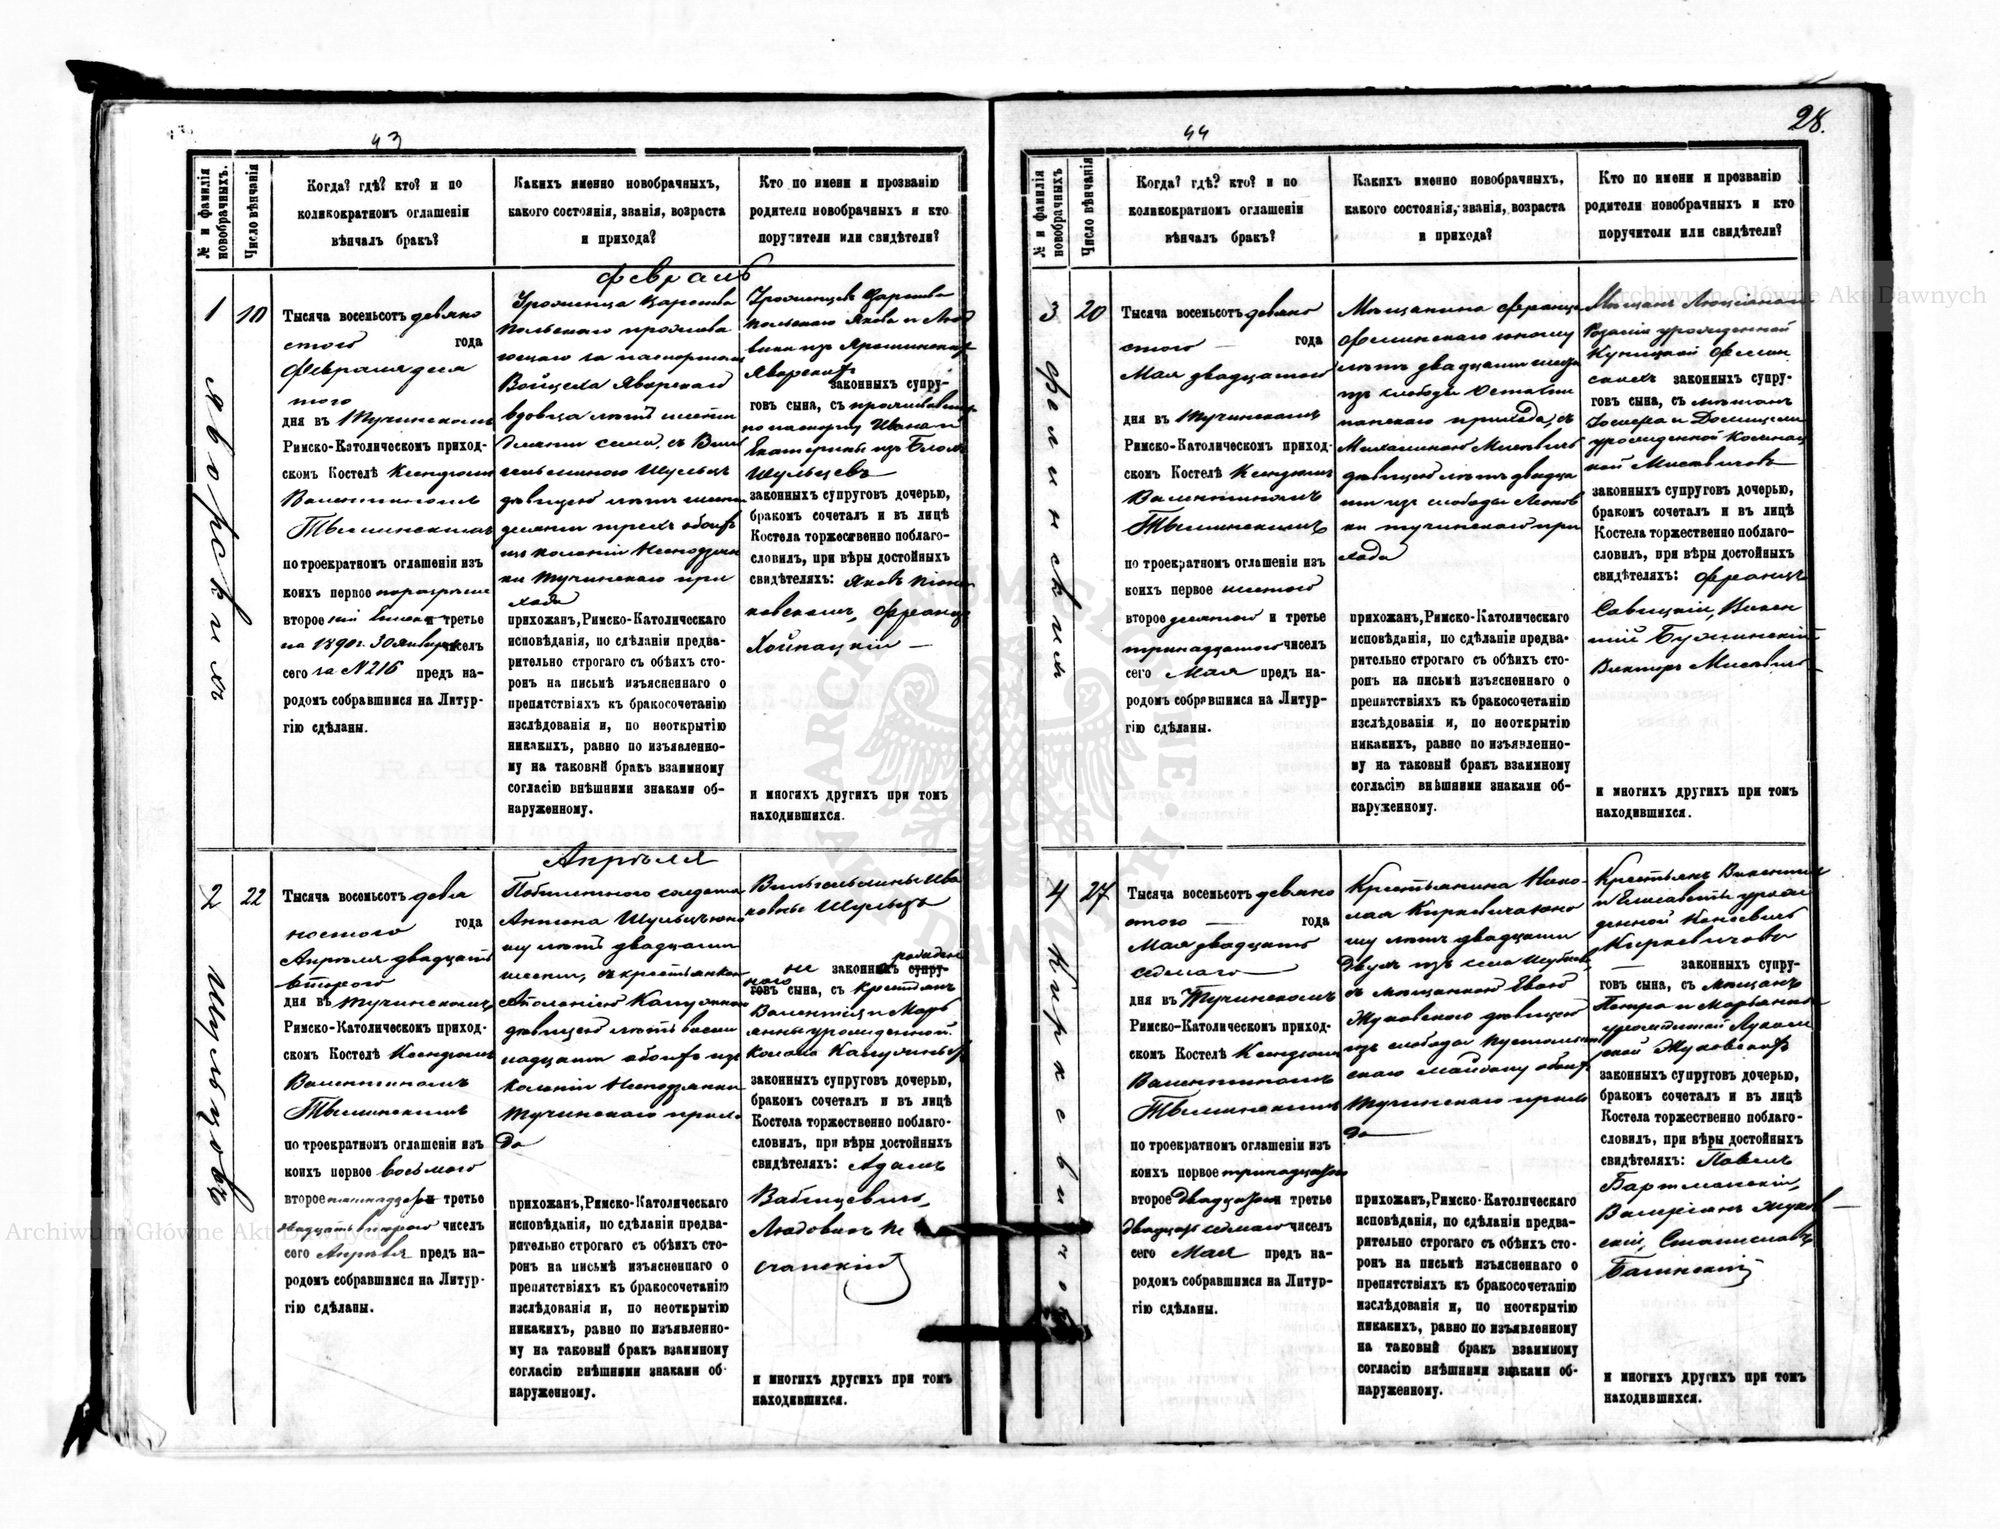 43
№ и фамилія новобрачныхъ.
Число вѣнчанія
Когда? гдѣ? кто? и по
коликократном оглашеніи
вѣнчалъ бракъ?
Какихъ именно новобрачныхъ,
какого состоянія, званія, возраста
и прихода?
Кто по имени и прозванію
родители новобрачныхъ и кто
поручители или свидѣтели?
февраль
1
Яворскихъ
10
Тысяча восемьсотъ девяно
стого года
февраля деся
того
дня въ Тучинскомъ
Римско-Католическом приход-
скомъ Костелѣ Ксендзомъ
Валентиномъ
по троекратном оглашеніи изъ
коихъ первое
второе и третье
на 1890 г. 30 января чиселъ
сего за N 216 предъ на-
родом собравшимся на Литур-
гію сдѣланы.
Уроженца Царства
польскаго прожива
ющаго за паспортомъ
Войцеха Яворскаго
вдовца лѣтъ шести
десяти семи, съ Виль
гельминою Шульцъ
дѣвицею лѣтъ шести
десяти трехъ обоихъ
изъ колоніи
Тучинскаго при
хода
прихожан, Римско-Католическаго
исповѣданія, по сдѣланіи предва-
рительно строгаго съ обѣихъ сто-
ронъ на письмѣ изъясненнаго о
препятствіяхъ къ бракосочетанію
изслѣдованія и, по неоткрытію
никакихъ, равно по изъявленно-
му на таковый бракъ взаимному
согласію внѣшними знаками об-
наруженному.
Уроженцевъ Царства
польскаго Якова и Люд
вики изъ
Яворскихъ
законныхъ супру-
говъ сына, съ
по паспорту Ивана и
Екатерины изъ
Шульцевъ
законныхъ супруговъ дочерью,
бракомъ сочеталъ и въ лицѣ
Костела торжественно поблаго-
словилъ, при вѣры достойныхъ
свидѣтеляхъ: Яковъ
ковскомъ, францъ
Хойнацкій
и многихъ другихъ при томъ
находившихся.
Апрѣля
2
Шульцовъ
22
Тысяча восемьсотъ девя
ностого года
Апрѣля двадцать
второго
дня въ Тучинскомъ
Римско-Католическом приход-
скомъ Костелѣ Ксендзомъ
Валентиномъ
по троекратномъ оглашеніи изъ
коихъ первое восьмого
второе и третье
двадцать второго чиселъ
сего Апрѣля предъ на-
родомъ собравшимся на Литур-
гію сдѣланы.
солдата
Антона Шульцъ юно
шу лѣтъ двадцати
шести, съ крестьянкою
Аполоніею
дѣвицею лѣтъ восем
надцати обоихъ изъ
колоніи
Тучинскаго прихо
да
прихожанъ, Римско-Католическаго
исповѣданія, по сдѣланіи предва-
рительно строгаго съ обѣихъ сто-
ронъ на письмѣ изъясненнаго о
препятствіяхъ къ бракосочетанію
изслѣдованія и, по неоткрытію
никакихъ, равно по изъявленно-
му на таковый бракъ взаимному
согласію внѣшними знаками об-
наруженному.
Вильгельмины Ива
новны Шульцъ
не законныхъ супру-
говъ сына, съ крестьянъ
Валентія и Марь
янны урожденной
законныхъ супруговъ дочерью,
бракомъ сочеталъ и въ лицѣ
Костела торжественно поблаго-
словилъ, при вѣры достойныхъ
свидѣтеляхъ: Адамъ
Людовикъ
и многихъ другихъ при томъ
находившихся.
44
28.
№ и фамилія новобрачныхъ
Число вѣнчанія
Когда? гдѣ? кто? и по
коликократном оглашеніи
вѣнчалъ бракъ?
Какихъ именно новобрачныхъ,
какого состоянія, званія, возраста
и прихода?
Кто по имени и прозванію
родители новобрачныхъ и кто
поручители или свидѣтели?
3
фелинскихъ
20
Тысяча восемьсотъ девяно
стого года
Мая двадцатого
дня въ Тучинскомъ
Римско-Католическомъ приход-
скомъ Костелѣ Ксендзомъ
Валентиномъ
по троекратномъ оглашеніи изъ
коихъ первое шестого
второе десятого и третье
тринадцатого чиселъ
сего Мая предъ на-
родомъ собравшимся на Литур-
гію сдѣланы.
Мещанина франца
фелинскаго юношу
лѣтъ двадцати шести
изъ слободы
прихода, съ
Михалиною
дѣвицею лѣтъ двадца
ти изъ слободы
Тучинскаго при
хода
прихожанъ, Римско-Католическаго
исповѣданія, по сдѣланіи предва-
рительно строгаго съ обѣихъ сто-
ронъ на письмѣ изъясненнаго о
препятствіяхъ къ бракосочетанію
изслѣдованія и, по неоткрытію
никакихъ, равно по изъявленно-
му на таковый бракъ взаимному
согласію внѣшними знаками об-
наруженному.
Мещанъ
Розаліи урожденной
фелин
скихъ законныхъ супру-
говъ сына, съ мещанъ
Іосифа и Домицели
урожденной
законныхъ супруговъ дочерью,
бракомъ сочеталъ и въ лицѣ
Костела торжественно поблаго-
словилъ, при вѣры достойныхъ
свидѣтеляхъ: францъ
Савицкій, Викен
тій
Викторъ
и многихъ другихъ при томъ
находившихся.
4
Киркевичовъ
27
Тысяча восемьсотъ девяно
стого года
Мая двадцать
седмаго
дня въ Тучинскомъ
Римско-Католическомъ приход-
скомъ Костелѣ Ксендзомъ
Валентиномъ
по троекратномъ оглашеніи изъ
коихъ первое тринадцатого
второе двадцатого и третье
двадцать седмаго чиселъ
сего Мая предъ на-
родомъ собравшимся на Литур-
гію сдѣланы.
Крестьянина Нико-
лая Киркевича юно
шу лѣтъ двадцати
двухъ изъ села
съ мещанкою Евою
Жуковскою дѣвицею
изъ слободы
обоихъ
Тучинскаго прихо
да
прихожанъ, Римско-Католическаго
исповѣданія, по сдѣланіи предва-
рительно строгаго съ обѣихъ сто-
ронъ на письмѣ изъясненнаго о
препятствіяхъ къ бракосочетанію
изслѣдованія и, по неоткрытію
никакихъ, равно по изъявленному
на таковый бракъ взаимному
согласію внѣшними знаками об-
наруженному.
Крестьянъ Викентія
и Елисаветы урож
денной
Киркевичовъ
законныхъ супру-
говъ сына, съ мещанъ
Петра и Марьянны
урожденной
Жуковскихъ
законныхъ супруговъ дочерью,
бракомъ сочеталъ и въ лицѣ
Костела торжественно поблаго-
словилъ, при вѣры достойныхъ
свидѣтеляхъ: Павелъ
Бартманскій,
Валеріанъ Жуков
скій, Станиславъ
Багинскій
и многихъ другихъ при томъ
находившихся.
Archiwum Główne Akt Dawnych
Archiwum Główne Akt Dawnych
ARCHIWUM GŁÓWNE AKT DAWNYCH